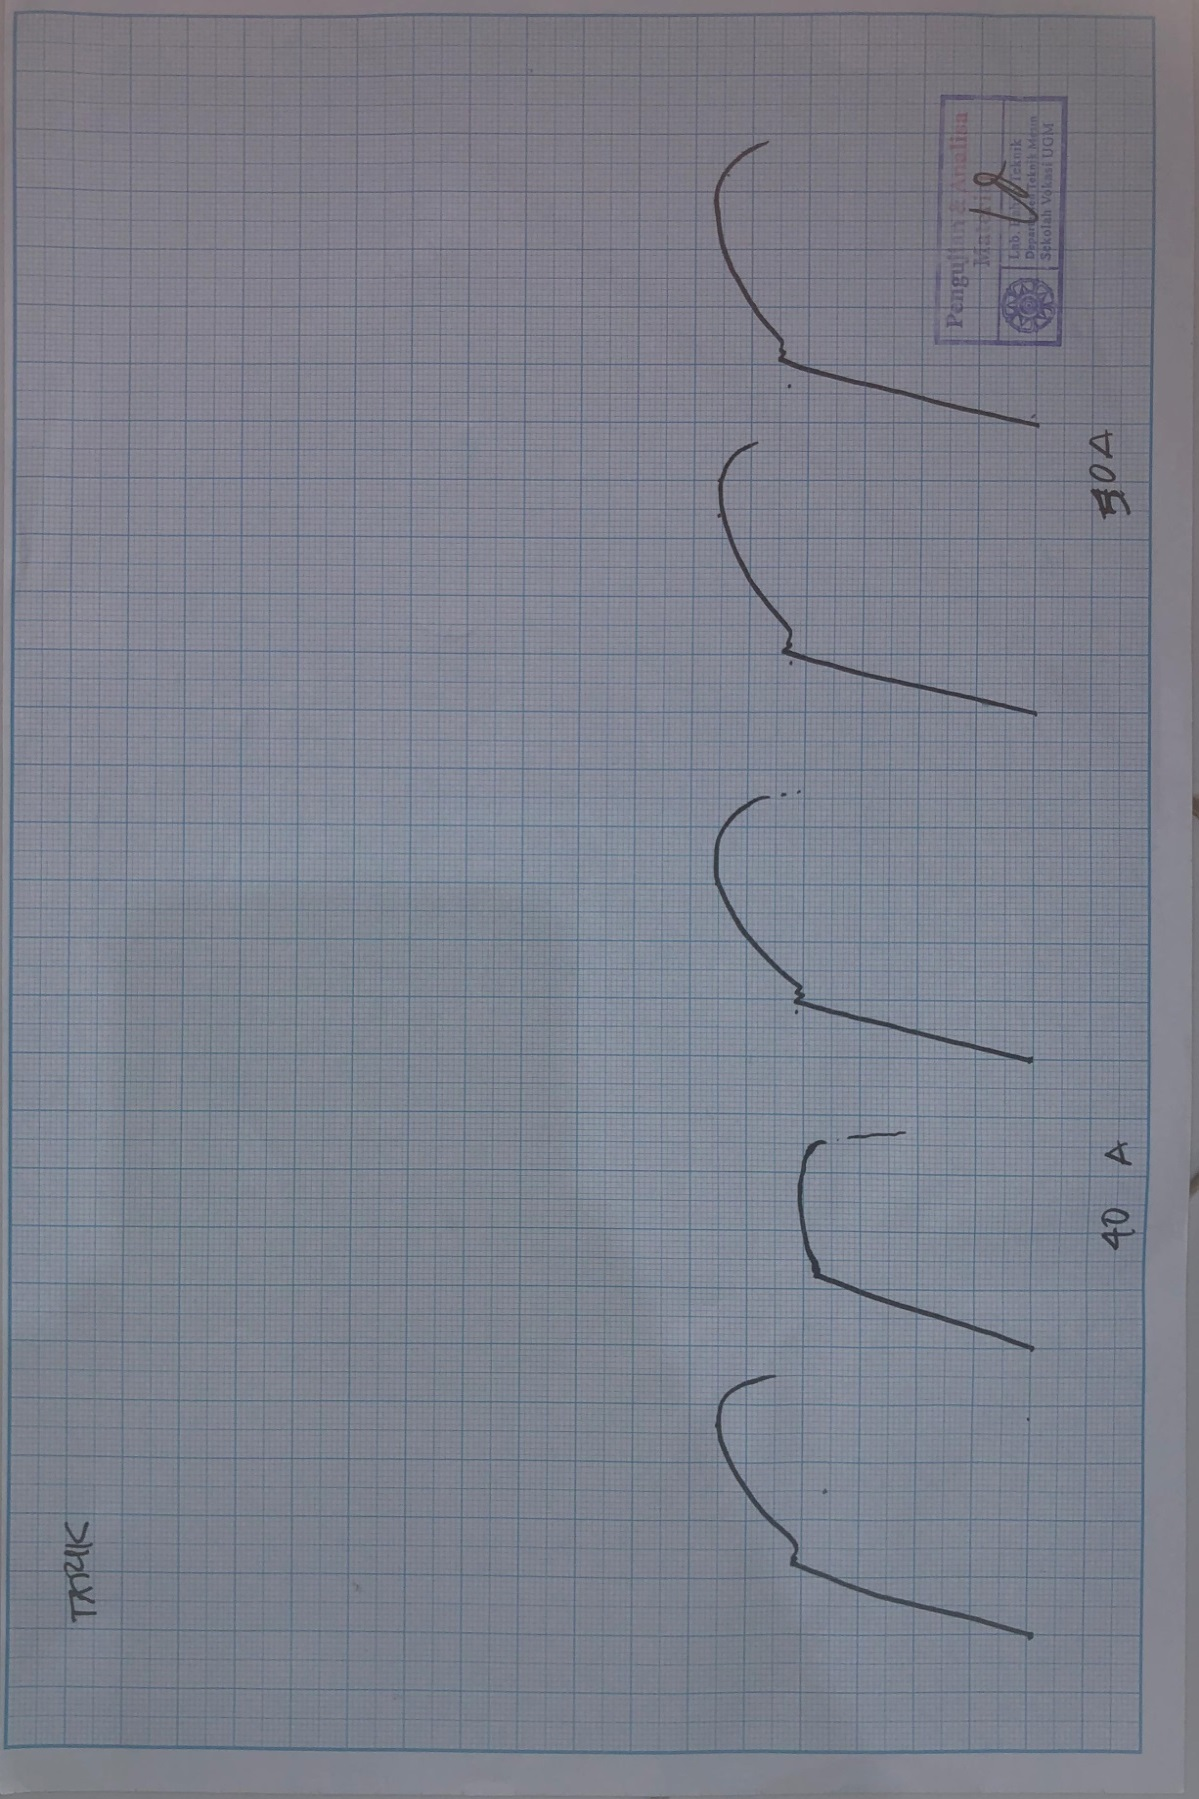 TARIK
40 A
50A
Pengujian & Analisa
Material
Lab. Teknik
Departemen Teknik Mesin
Sekolah Vokasi UGM